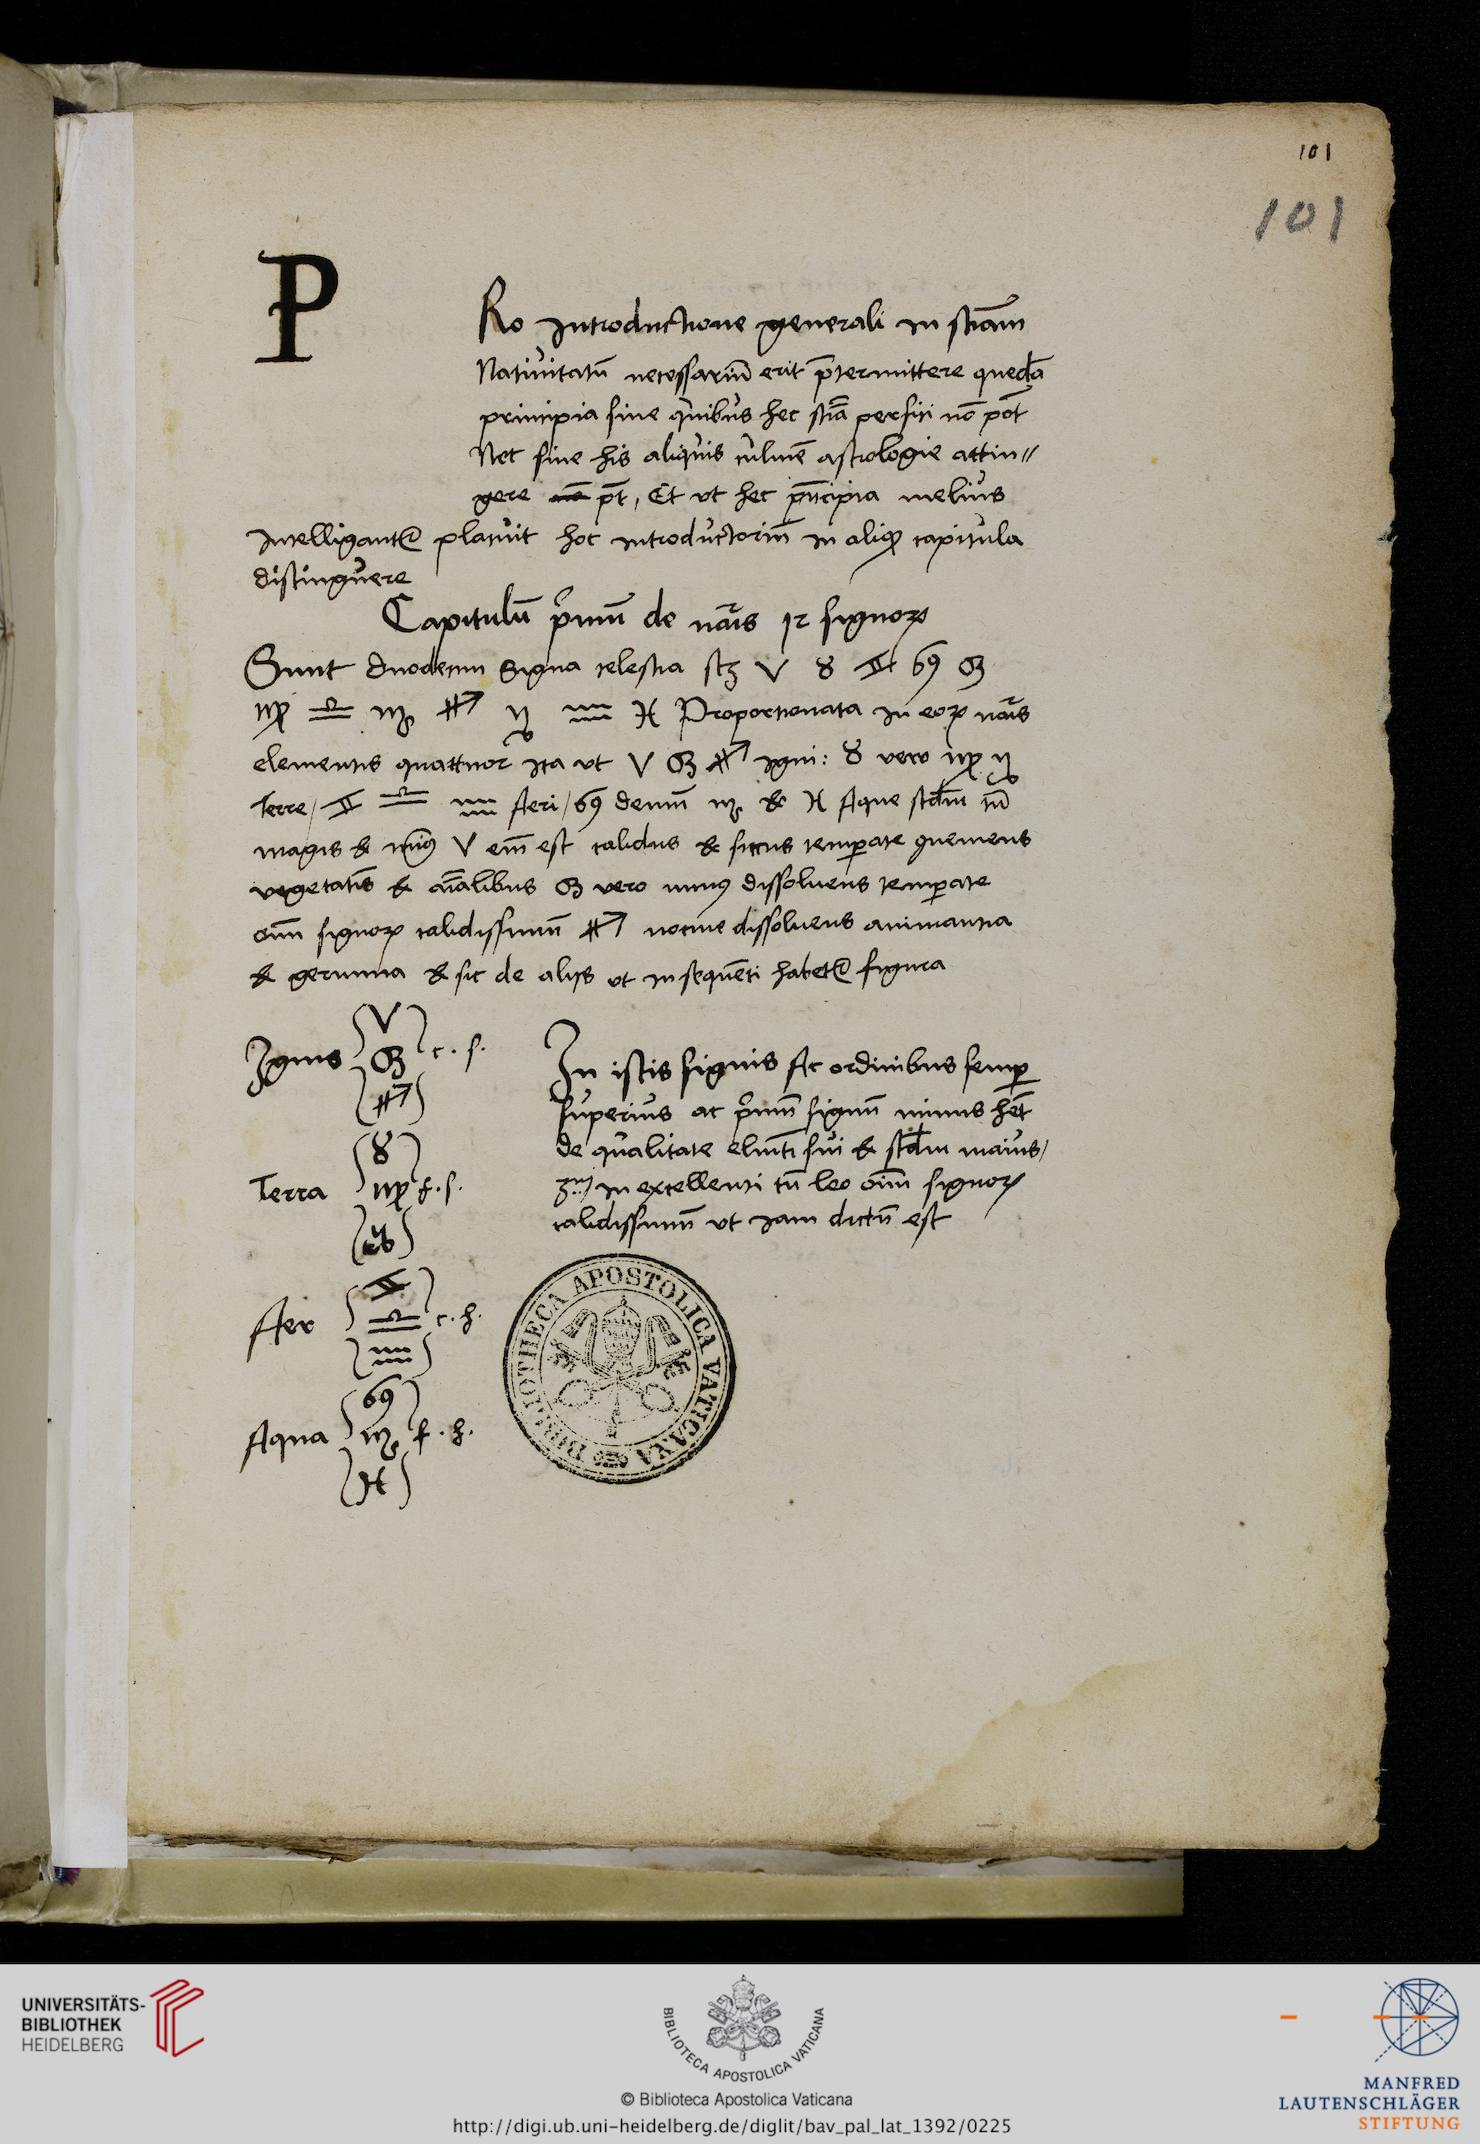 101
101
P
Ro introductione generali in sciam
Nativitatū necessariū erit p̄termittere quedā
principia sine quibus hec sciā perfici nō pōt
Nec sine his aliquis culmē astrologie attin//
gere nō pt̄, Et ut hec pn̄cipia melius
intelligantr placuit hoc introductoriū in aliqꝫ capitula
distinguere
Capitulū pͥmū de naͬis 12 signoꝝ
Sunt duodecim Signa celestia scꝫ ♈ ♉ ♊ ♋ ♌
♍ ♎ ♏ ♐ ♑ ♒ ♓ Proportionata in eoꝝ naͬis
elementis quattuor ita ut ♈ ♌ ♐ igni: ♉ vero ♍ ♑
Terre / ♊ ♎ ♒ Aeri / ♋ demū ♏ & ♓ Aque scdm tn̄
magis & minꝰ ♈ em̄ est calidus & siccus temperate ꝯveniens
vegetatis & aīalibus ♌ vero minꝰ dissolvens temperate
oīm signoꝝ calidissimū ♐ nocive dissolvens animantia
& germina & sic de alijs ut in sequēti habetr figura
Ignis ♈ ♌ ♐ c. s.
Terra ♉ ♍ ♑ f. s.
Aer ♊ ♎ ♒ c. h.
Aqua ♋ ♏ ♓ f. h.
In istis signis Ac ordinibus semꝑ
superius ac pͥmū signū minus hēt
de qualitate elmēti sui & scdm maius /
3m / in excellenti tn̄ leo oīm signoꝝ
calidissimū ut iam dictū est
BIBLIOTHECA APOSTOLICA VATICANA
UNIVERSITÄTS-
BIBLIOTHEK
HEIDELBERG
BIBLIOTECA APOSTOLICA VATICANA
© Biblioteca Apostolica Vaticana
http://digi.ub.uni-heidelberg.de/diglit/bav_pal_lat_1392/0225
MANFRED
LAUTENSCHLÄGER
STIFTUNG